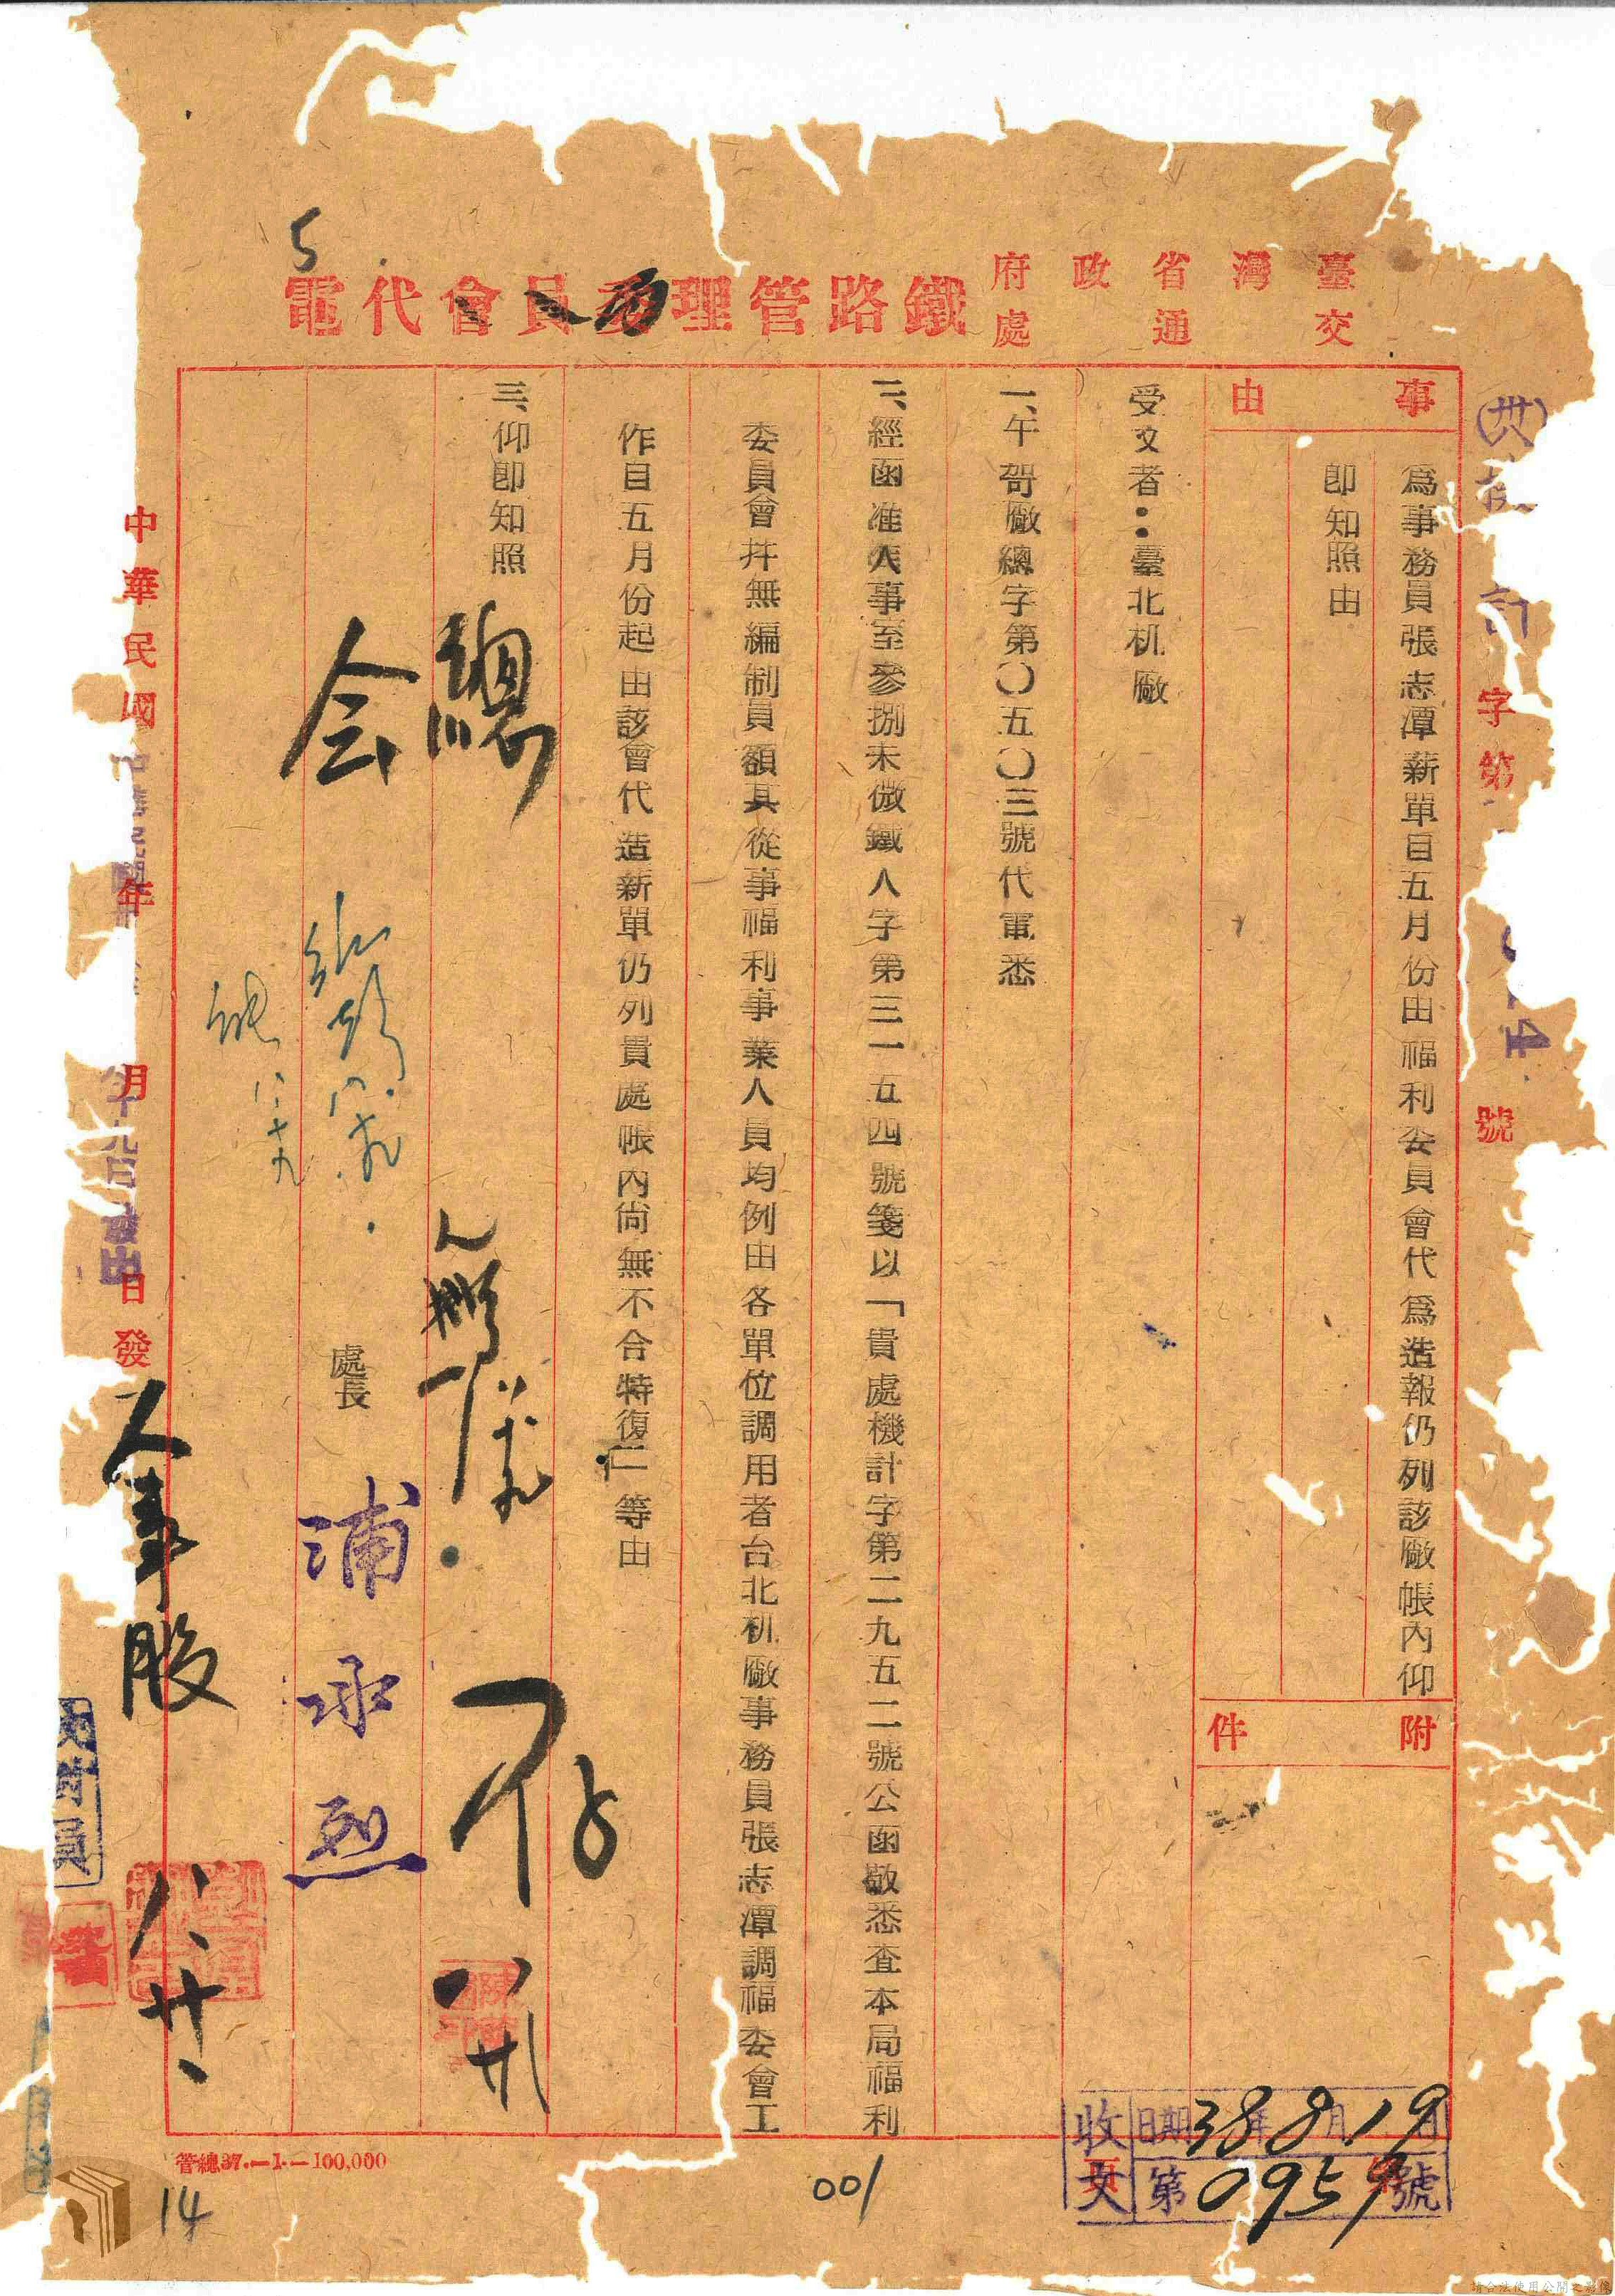 臺灣省政府
交通處
鐵路管理委員會代電
5
字第
號
事由
為事務員張志潭薪單自五月份由福利委員會代為造報仍列該廠帳內仰
即知照由
附件
受文者：臺北机廠
一、午哿廠總字第〇五〇三號代電悉
二、經函准人事室參捌未微鐵人字第三一五四號箋以「貴處機計字第二九五二號公函敬悉查本局福利
委員會并無編制員額其從事福利事業人員均例由各單位調用者台北机廠事務員張志潭調福委會工
作自五月份起由該會代造薪單仍列貴處帳內尚無不合特復仁等由
三、仰即知照
總
会
存
八 卅
處長
浦承烈
中華民國 年 月 日發
人事股
八 廿
收文
日期 38年8月19日
第0959號
管總37.—1—100,000
001
14
請合法使用公開之影像